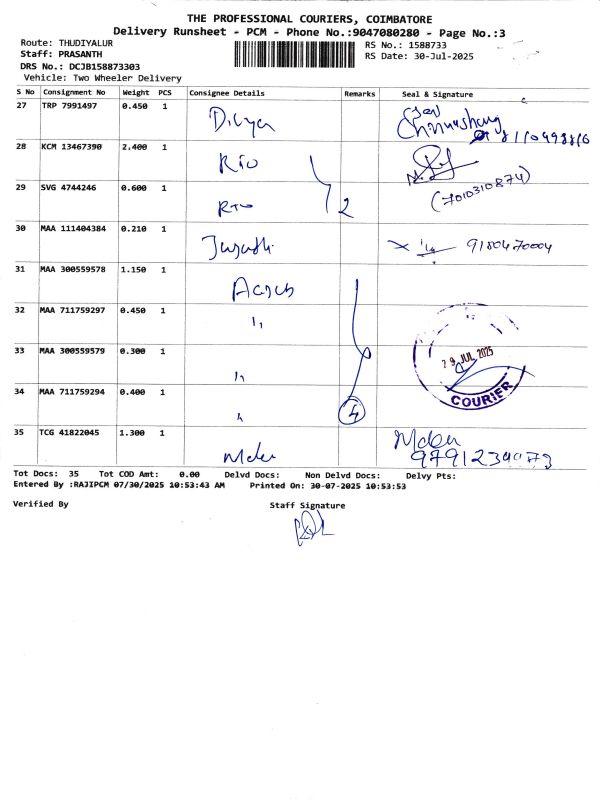 THE PROFESSIONAL COURIERS, COIMBATORE
Delivery Runsheet - PCM - Phone No.:9047080280 - Page No.:3
Route: THUDIYALUR
Staff: PRASANTH
DRS No.: DCJB158873303
Vehicle: Two Wheeler Delivery
RS No.: 1588733
RS Date: 30-Jul-2025
S No Consignment No Weight PCS Consignee Details Remarks Seal & Signature
27 TRP 7991497 0.450 1 Divya
28 KCM 13467390 2.400 1 Rio
29 SVG 4744246 0.600 1 Rio 2 (7010310874)
30 MAA 111404384 0.210 1 9180470004
31 MAA 300559578 1.150 1
32 MAA 711759297 0.450 1 11
33 MAA 300559579 0.300 1 11 29 JUL 2025
34 MAA 711759294 0.400 1 4 COURIER
35 TCG 41822045 1.300 1
Tot Docs: 35 Tot COD Amt: 0.00 Delvd Docs: Non Delvd Docs: Delvy Pts:
Entered By :RAJIPCM 07/30/2025 10:53:43 AM Printed On: 30-07-2025 10:53:53
Verified By Staff Signature